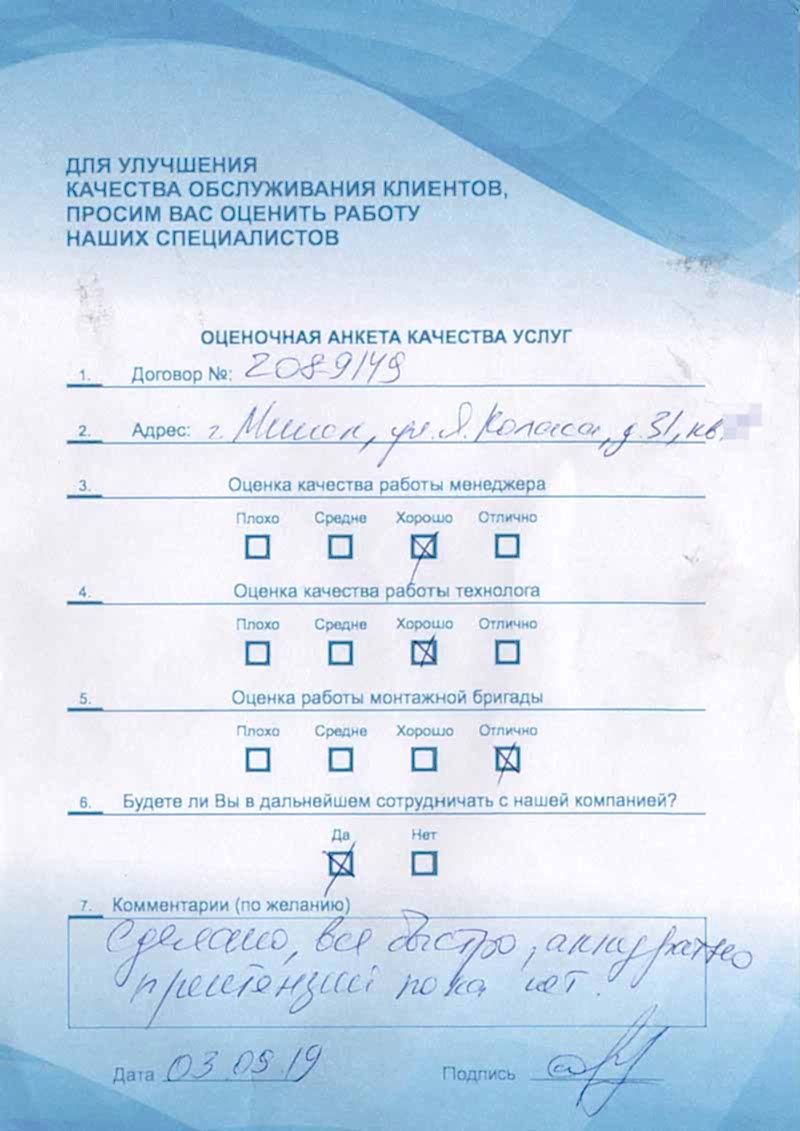 ДЛЯ УЛУЧШЕНИЯ
КАЧЕСТВА ОБСЛУЖИВАНИЯ КЛИЕНТОВ,
ПРОСИМ ВАС ОЦЕНИТЬ РАБОТУ
НАШИХ СПЕЦИАЛИСТОВ
ОЦЕНОЧНАЯ АНКЕТА КАЧЕСТВА УСЛУГ
1. Договор №: 2089/49
2. Адрес: г. Минск, ул. Я. Коласа, д. 31, кв.
3. Оценка качества работы менеджера
Плохо Средне Хорошо Отлично
4. Оценка качества работы технолога
Плохо Средне Хорошо Отлично
5. Оценка работы монтажной бригады
Плохо Средне Хорошо Отлично
6. Будете ли Вы в дальнейшем сотрудничать с нашей компанией?
Да Нет
7. Комментарии (по желанию)
Сделано, все быстро, аккуратно
притензий пока нет.
Дата 03.09.19 Подпись